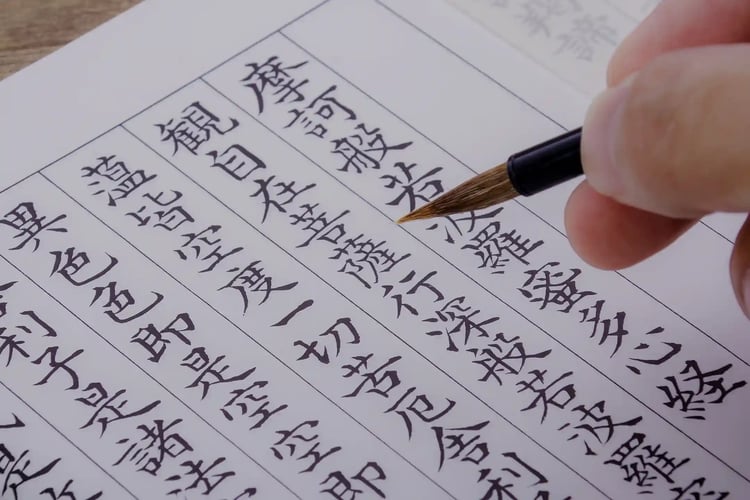 羯諦
摩訶般若波羅蜜多心経
観自在菩薩行深般若波羅
蘊皆空度一切苦厄舎利
異色色即是空空即
利子是諸法
是